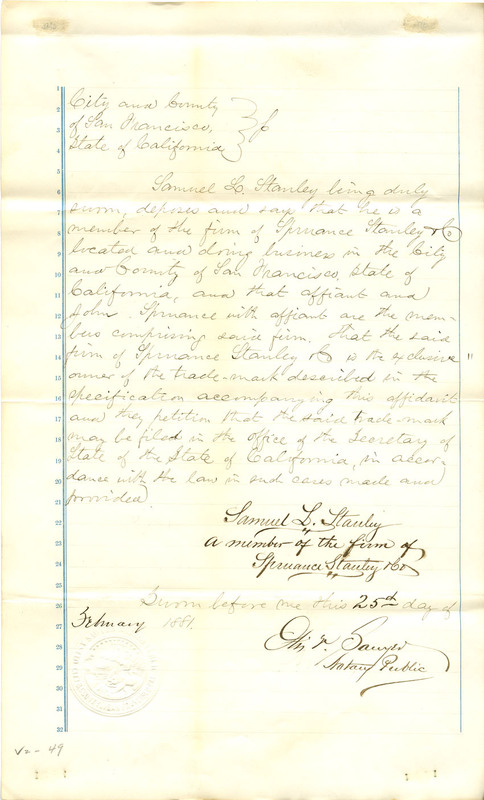 City and County
of San Francisco,
State of California
Samuel L. Stanley being duly
sworn, deposes and says that he is a
member of the firm of Spruance Stanley & Co
located and doing business in the City
and County of San Francisco, State of
California, and that affiant and
John Spruance with affiant are the mem-
bers comprising said firm. That the said
firm of Spruance Stanley & Co is the exclusive "
owner of the trade-mark described in the
specification accompanying this affidavit
and they petition that the said trade-mark
may be filed in the office of the Secretary of
State of the State of California, in accor-
dance with the law in such cases made and
provided.
Samuel L. Stanley
a member of the firm of
Spruance Stanley & Co
Sworn before me this 25th day of
February 1881.
Notary Public
1
2
3
4
5
6
7
8
9
10
11
12
13
14
15
16
17
18
19
20
21
22
23
24
25
26
27
28
29
30
31
32
49